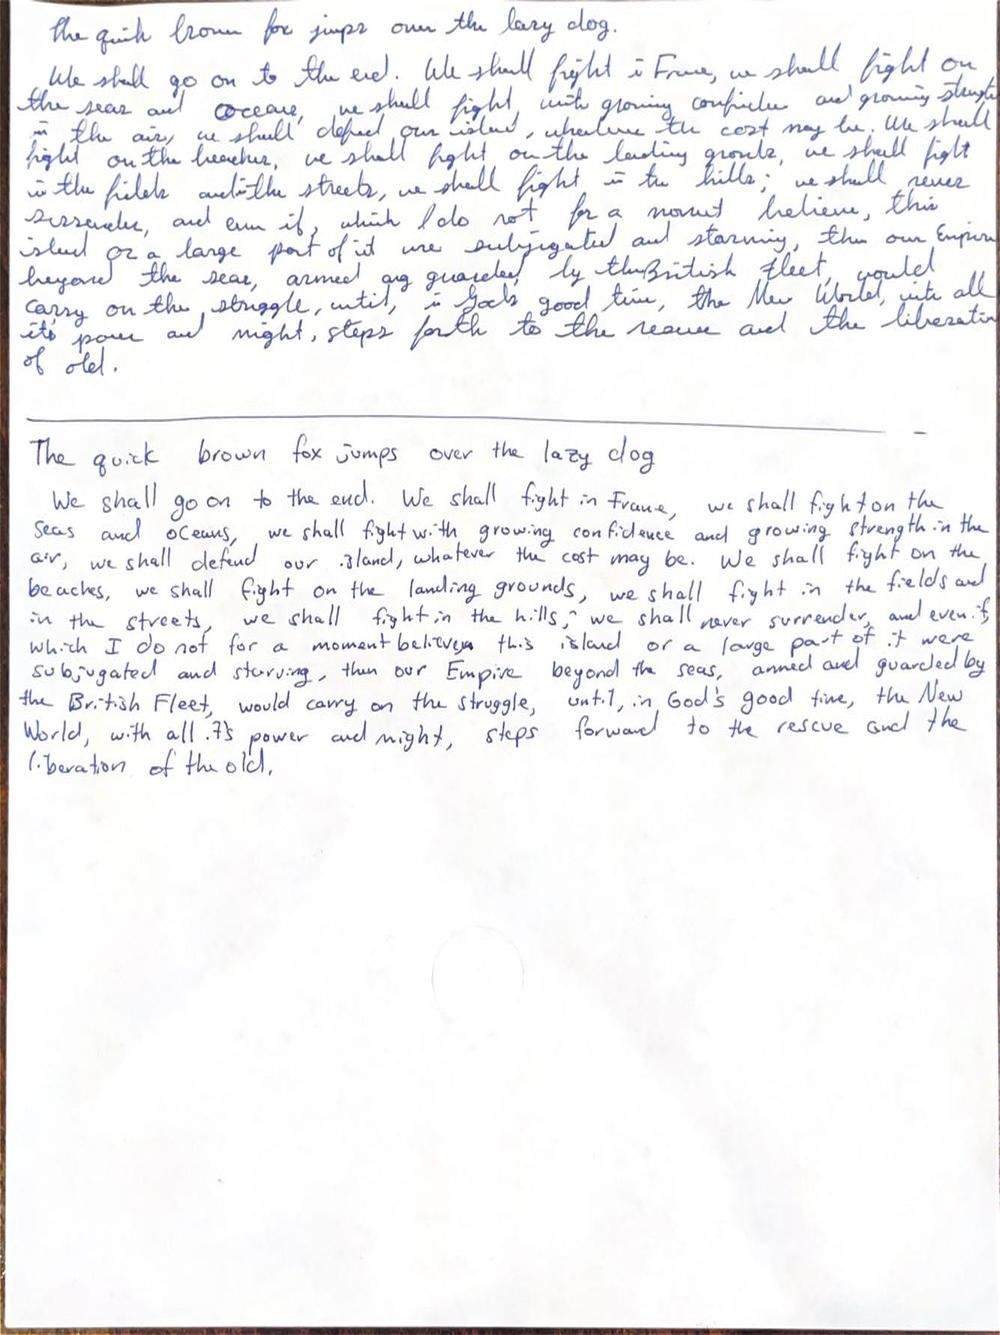 The quick brown fox jumps over the lazy dog.
We shall go on to the end. We shall fight in France, we shall fight on
the seas and oceans, we shall fight with growing confidence and growing strength
in the air, we shall defend our island, whatever the cost may be. We shall
fight on the beaches, we shall fight on the landing grounds, we shall fight
in the fields and in the streets, we shall fight in the hills; we shall never
surrender, and even if, which I do not for a moment believe, this
island or a large part of it were subjugated and starving, then our Empire
beyond the seas, armed and guarded by the British Fleet, would
carry on the struggle, until, in God's good time, the New World, with all
it's power and might, steps forth to the rescue and the liberation
of old.
The quick brown fox jumps over the lazy dog
We shall go on to the end. We shall fight in France, we shall fight on the
seas and oceans, we shall fight with growing confidence and growing strength in the
air, we shall defend our island, whatever the cost may be. We shall fight on the
beaches, we shall fight on the landing grounds, we shall fight in the fields and
in the streets, we shall fight in the hills; we shall never surrender, and even if,
which I do not for a moment believe, this island or a large part of it were
subjugated and starving, then our Empire beyond the seas, armed and guarded by
the British Fleet, would carry on the struggle, until, in God's good time, the New
World, with all it's power and might, steps forward to the rescue and the
liberation of the old.